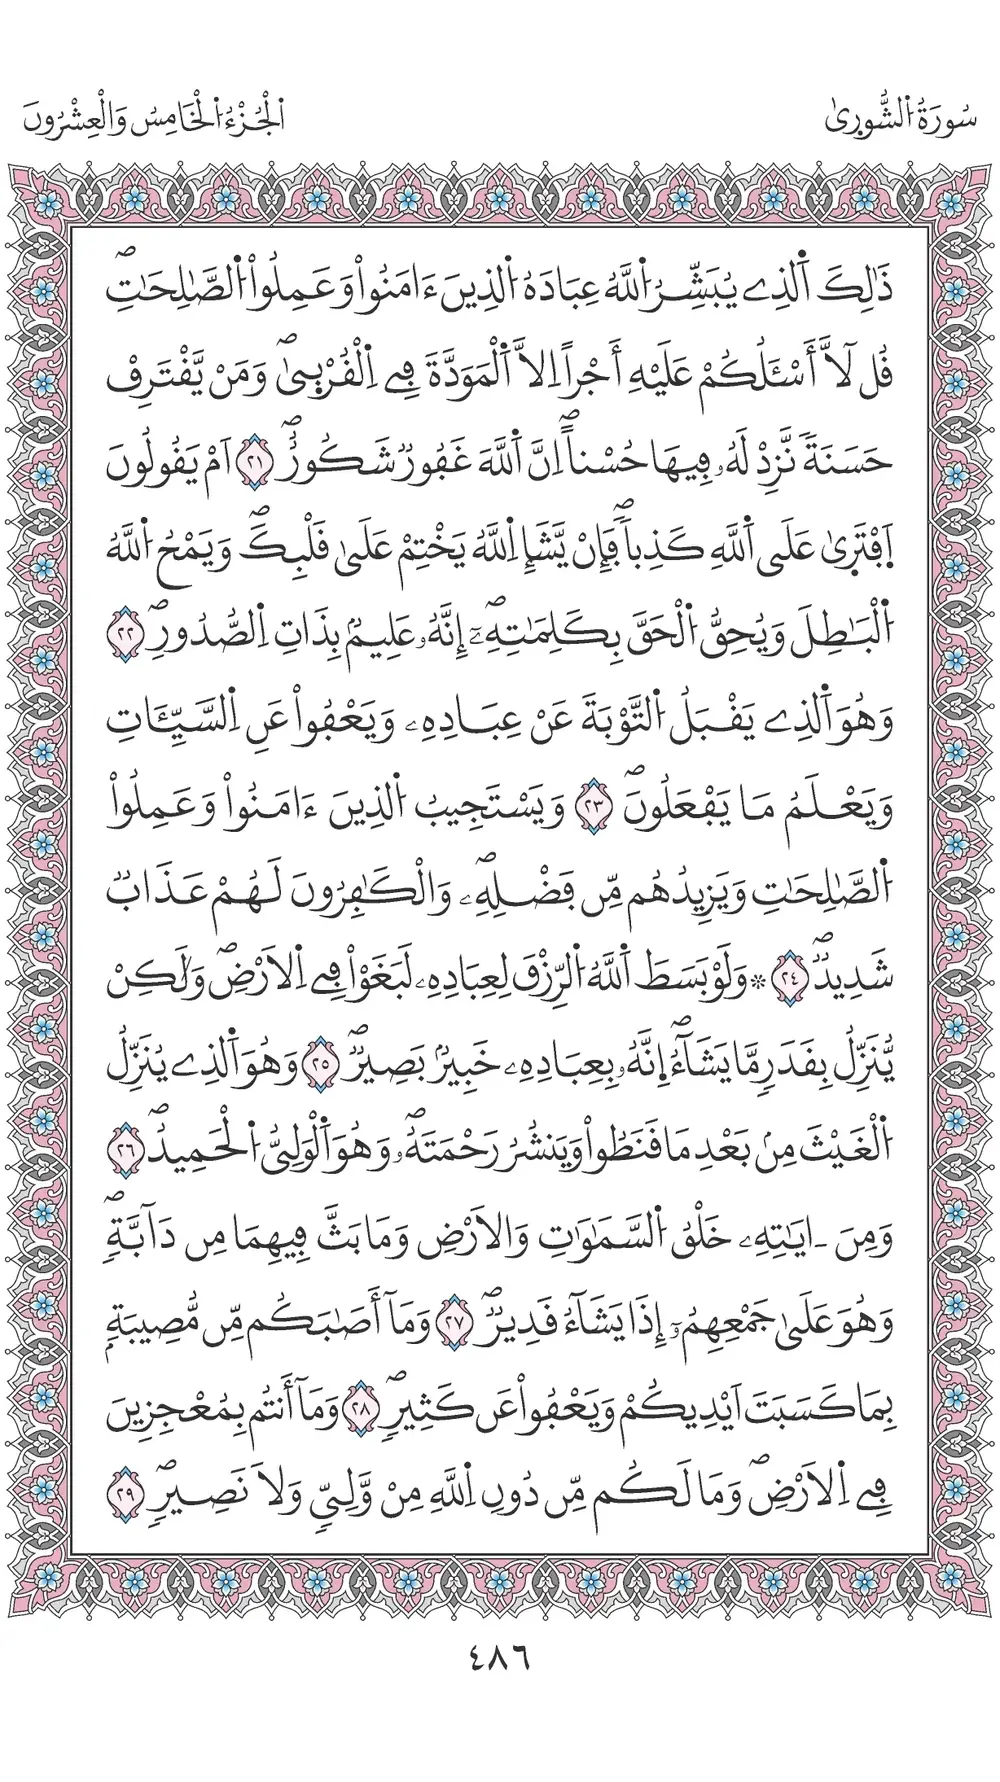 سُورَةُ الشُّورۭىٰ
الْجُزْءُ الْخَامِسُ وَالْعِشْرُونَ
ذَٰلِكَ اَ۬لذِے يُبَشِّرُ اُ۬للَّهُ عِبَادَهُ اُ۬لذِينَ ءَامَنُواْ وَعَمِلُواْ اُ۬لصَّٰلِحَٰتِۖ
قُل لَّآ أَسْـَٔلُكُمْ عَلَيْهِ أَجْراً اِلَّا اَ۬لْمَوَدَّةَ فِے اِ۬لْقُرْبۭىٰۖ وَمَنْ يَّقْتَرِفْ
حَسَنَةٗ نَّزِدْ لَهُۥ فِيهَا حُسْناًۖ اِنَّ اَ۬للَّهَ غَفُورٞ شَكُورٌۖ ٢١ اَمْ يَقُولُونَ
اَ۪فْتَرۭىٰ عَلَى اَ۬للَّهِ كَذِباٗۖ فَإِنْ يَّشَإِ اِ۬للَّهُ يَخْتِمْ عَلَىٰ قَلْبِكَۖ وَيَمْحُ اُ۬للَّهُ
اُ۬لْبَٰطِلَ وَيُحِقُّ اُ۬لْحَقَّ بِكَلِمَٰتِهِۦٓۖ إِنَّهُۥ عَلِيمُۢ بِذَاتِ اِ۬لصُّدُورِۖ ٢٢
وَهُوَ اَ۬لذِے يَقْبَلُ اُ۬لتَّوْبَةَ عَنْ عِبَادِهِۦ وَيَعْفُواْ عَنِ اِ۬لسَّيِّـَٔاتِ
وَيَعْلَمُ مَا يَفْعَلُونَۖ ٢٣ وَيَسْتَجِيبُ اُ۬لذِينَ ءَامَنُواْ وَعَمِلُواْ
اُ۬لصَّٰلِحَٰتِ وَيَزِيدُهُم مِّن فَضْلِهِۦۖ وَالْكَٰفِرُونَ لَهُمْ عَذَابٞ
شَدِيدٞۖ ٢٤ ۞ وَلَوْ بَسَطَ اَ۬للَّهُ اُ۬لرِّزْقَ لِعِبَادِهِۦ لَبَغَوْاْ فِے اِ۬لَارْضِۖ وَلَٰكِنْ
يُّنَزِّلُ بِقَدَرٖ مَّا يَشَآءُۖ اِ۪نَّهُۥ بِعِبَادِهِۦ خَبِيرُۢ بَصِيرٞۖ ٢٥ وَهُوَ اَ۬لذِے يُنَزِّلُ
اُ۬لْغَيْثَ مِنۢ بَعْدِ مَا قَنَطُواْ وَيَنشُرُ رَحْمَتَهُۥۖ وَهُوَ اَ۬لْوَلِيُّ اُ۬لْحَمِيدُۖ ٢٦
وَمِنَ اٰيَٰتِهِۦ خَلْقُ اُ۬لسَّمَٰوَٰتِ وَالَارْضِ وَمَا بَثَّ فِيهِمَا مِن دَآبَّةٖۖ
وَهُوَ عَلَىٰ جَمْعِهِمُۥٓ إِذَا يَشَآءُ قَدِيرٞۖ ٢٧ وَمَآ أَصَٰبَكُم مِّن مُّصِيبَةِۢ
بِمَا كَسَبَتَ اَيْدِيكُمْ وَيَعْفُواْ عَن كَثِيرٖۖ ٢٨ وَمَآ أَنتُم بِمُعْجِزِينَ
فِے اِ۬لَارْضِۖ وَمَا لَكُم مِّن دُونِ اِ۬للَّهِ مِنْ وَّلِيّٖ وَلَا نَصِيرٖۖ ٢٩
٤٨٦